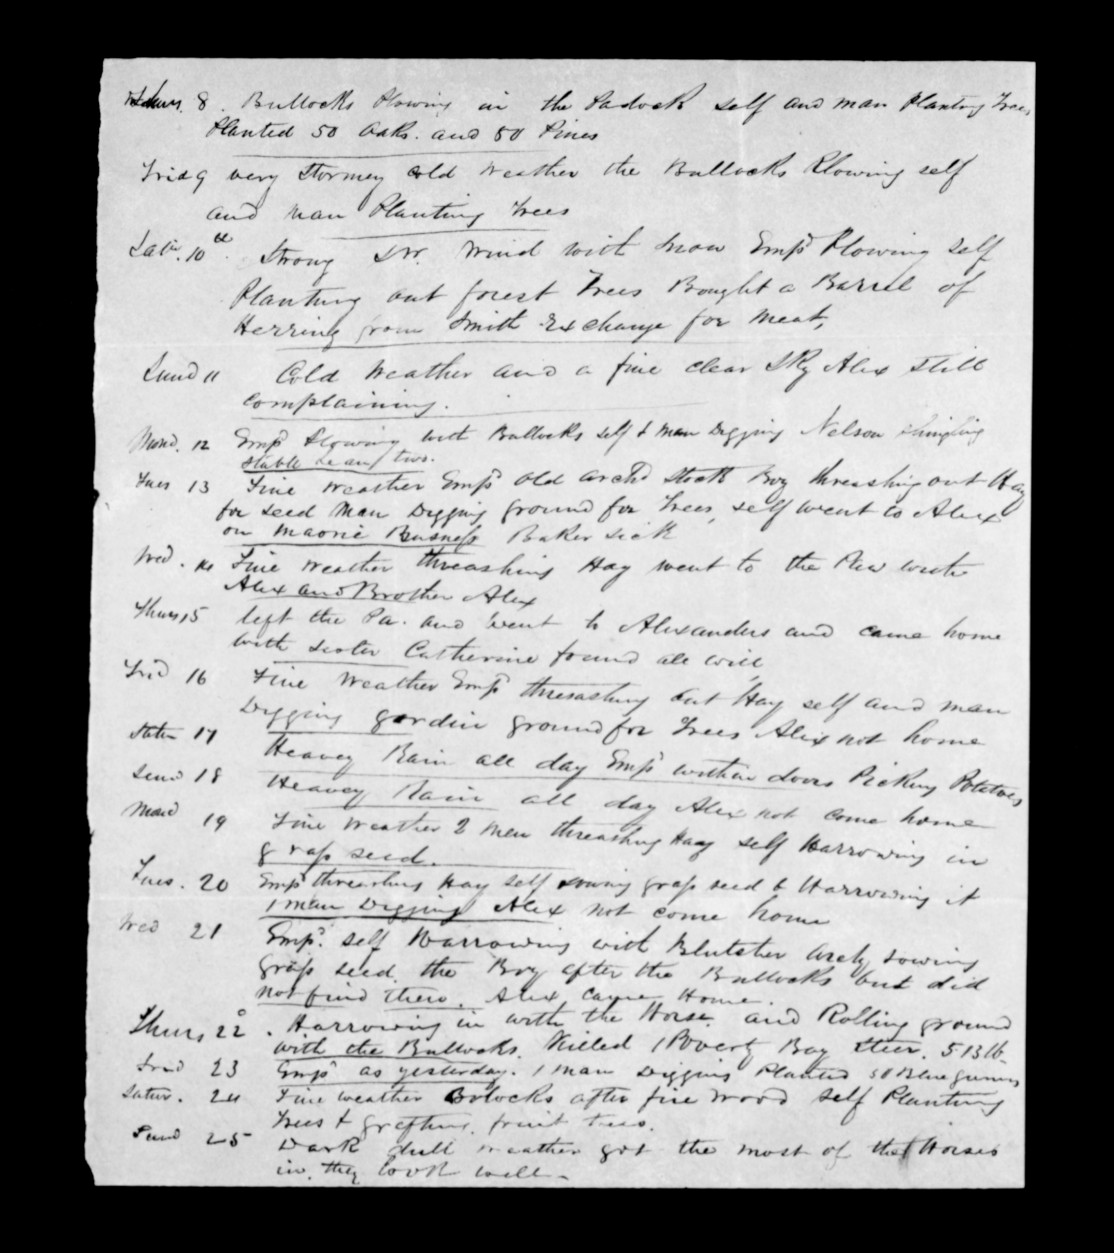 Thurs. 8. Bullocks Plowing in the Padock self and man Planting Trees
Planted 50 Oaks. and 50 Pines
Frid 9 very Stormey Cold Weather the Bullocks Plowing self
and man Planting Trees
Satr. 10th Strong SW. Wind with snow Empd Plowing self
Planting out forest Trees Bought a Barrel of
Herring from Smith Exchange for meat,
Sund 11 Cold Weather and a fine clear Sky Alex still
complaining.
Mond. 12 Empd Plowing with Bullocks self & man Digging Nelson shingling
stable lean two.
Tues 13 Fine Weather Empd old Archd Stock Boy threashing out Hay
for seed Man Digging ground for Trees, self went to Alex
on Maorie Busness Baker sick
Wed. 14 Fine weather threashing Hay went to the Paw with
Alex and Brother Alex
Thurs 15 left the Pa. and went to Alexanders and came home
with sister Catherine found all well
Frid 16 Fine Weather Empd threashing out Hay self and man
Digging gardin ground for Trees Alex not home
Satr 17 Heavey Rain all day Empd within doors Picking Potatoes
Sund 18 Heavey Rain all day Alex not come home
Mond 19 Fine Weather 2 men threashing Hay self Harrowing in
grass seed.
Tues. 20 Empd threashing Hay self sowing grass seed & Harrowing it
1 man Digging Alex not come home
Wed 21 Empd. self Harrowing with Blutcher Archy sowing
grass seed the Boy after the Bullocks but did
not find them. Alex came Home.
Thurs 22. Harrowing in with the Horse and Rolling ground
with the Bullocks. Killed 1 Poverty Bay Steer. 513 lb
Frid 23 Empd as yesterday. 1 man Digging Planted 50 Blue gums
Satur. 24 Fine weather Bolocks after fire wood self Planting
Trees & grafting fruit trees.
Sund 25 Dark dull weather got the most of the Horses
in. they look well